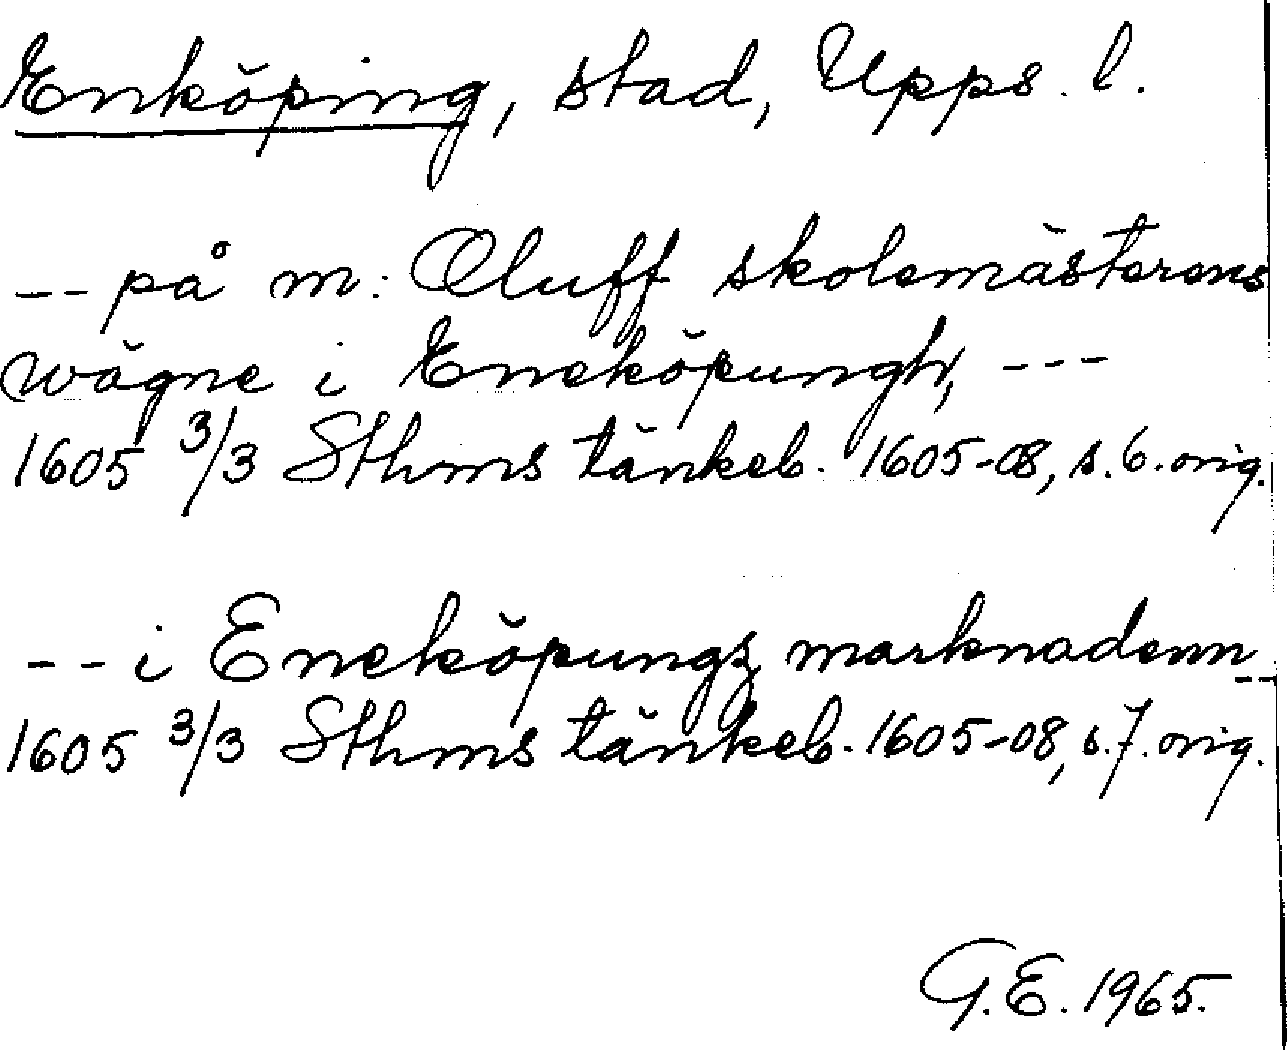 Enköping, stad, Upps. l.
-- på m: Oluff skolemästerens
wägne i Eneköpungh, ---
1605 3/3 Sthms tänkeb. 1605-08, s. 6. orig.
-- i Eneköpungz marknadenn --
1605 3/3 Sthms tänkeb. 1605-08, s. 7. orig.
G. E. 1965.